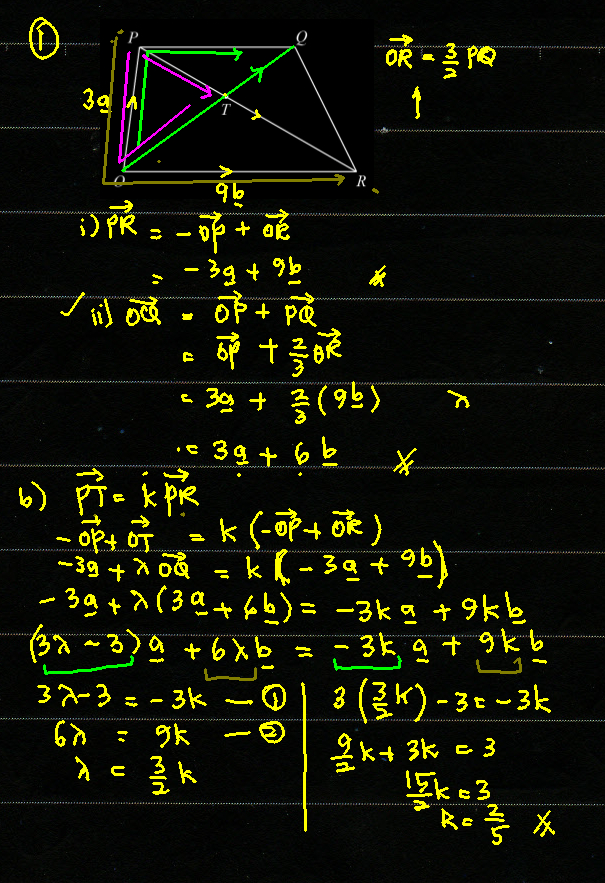 ①
P Q
OR→ = 3/2 PQ
3a
T
O R
9b
i) PR→ = -OP→ + OR→
= -3a + 9b
✓ ii) OQ→ = OP→ + PQ→
= OP→ + 2/3 OR→
= 3a + 2/3 (9b) λ
= 3a + 6b
b) PT→ = k PR→
-OP→ + OT→ = k (-OP→ + OR→)
-3a + λ OQ→ = k (-3a + 9b)
-3a + λ(3a + 6b) = -3k a + 9k b
(3λ - 3) a + 6λ b = -3k a + 9k b
3λ - 3 = -3k — ①
6λ = 9k — ②
λ = 3/2 k
3 (3/2 k) - 3 = -3k
9/2 k + 3k = 3
15/2 k = 3
k = 2/5